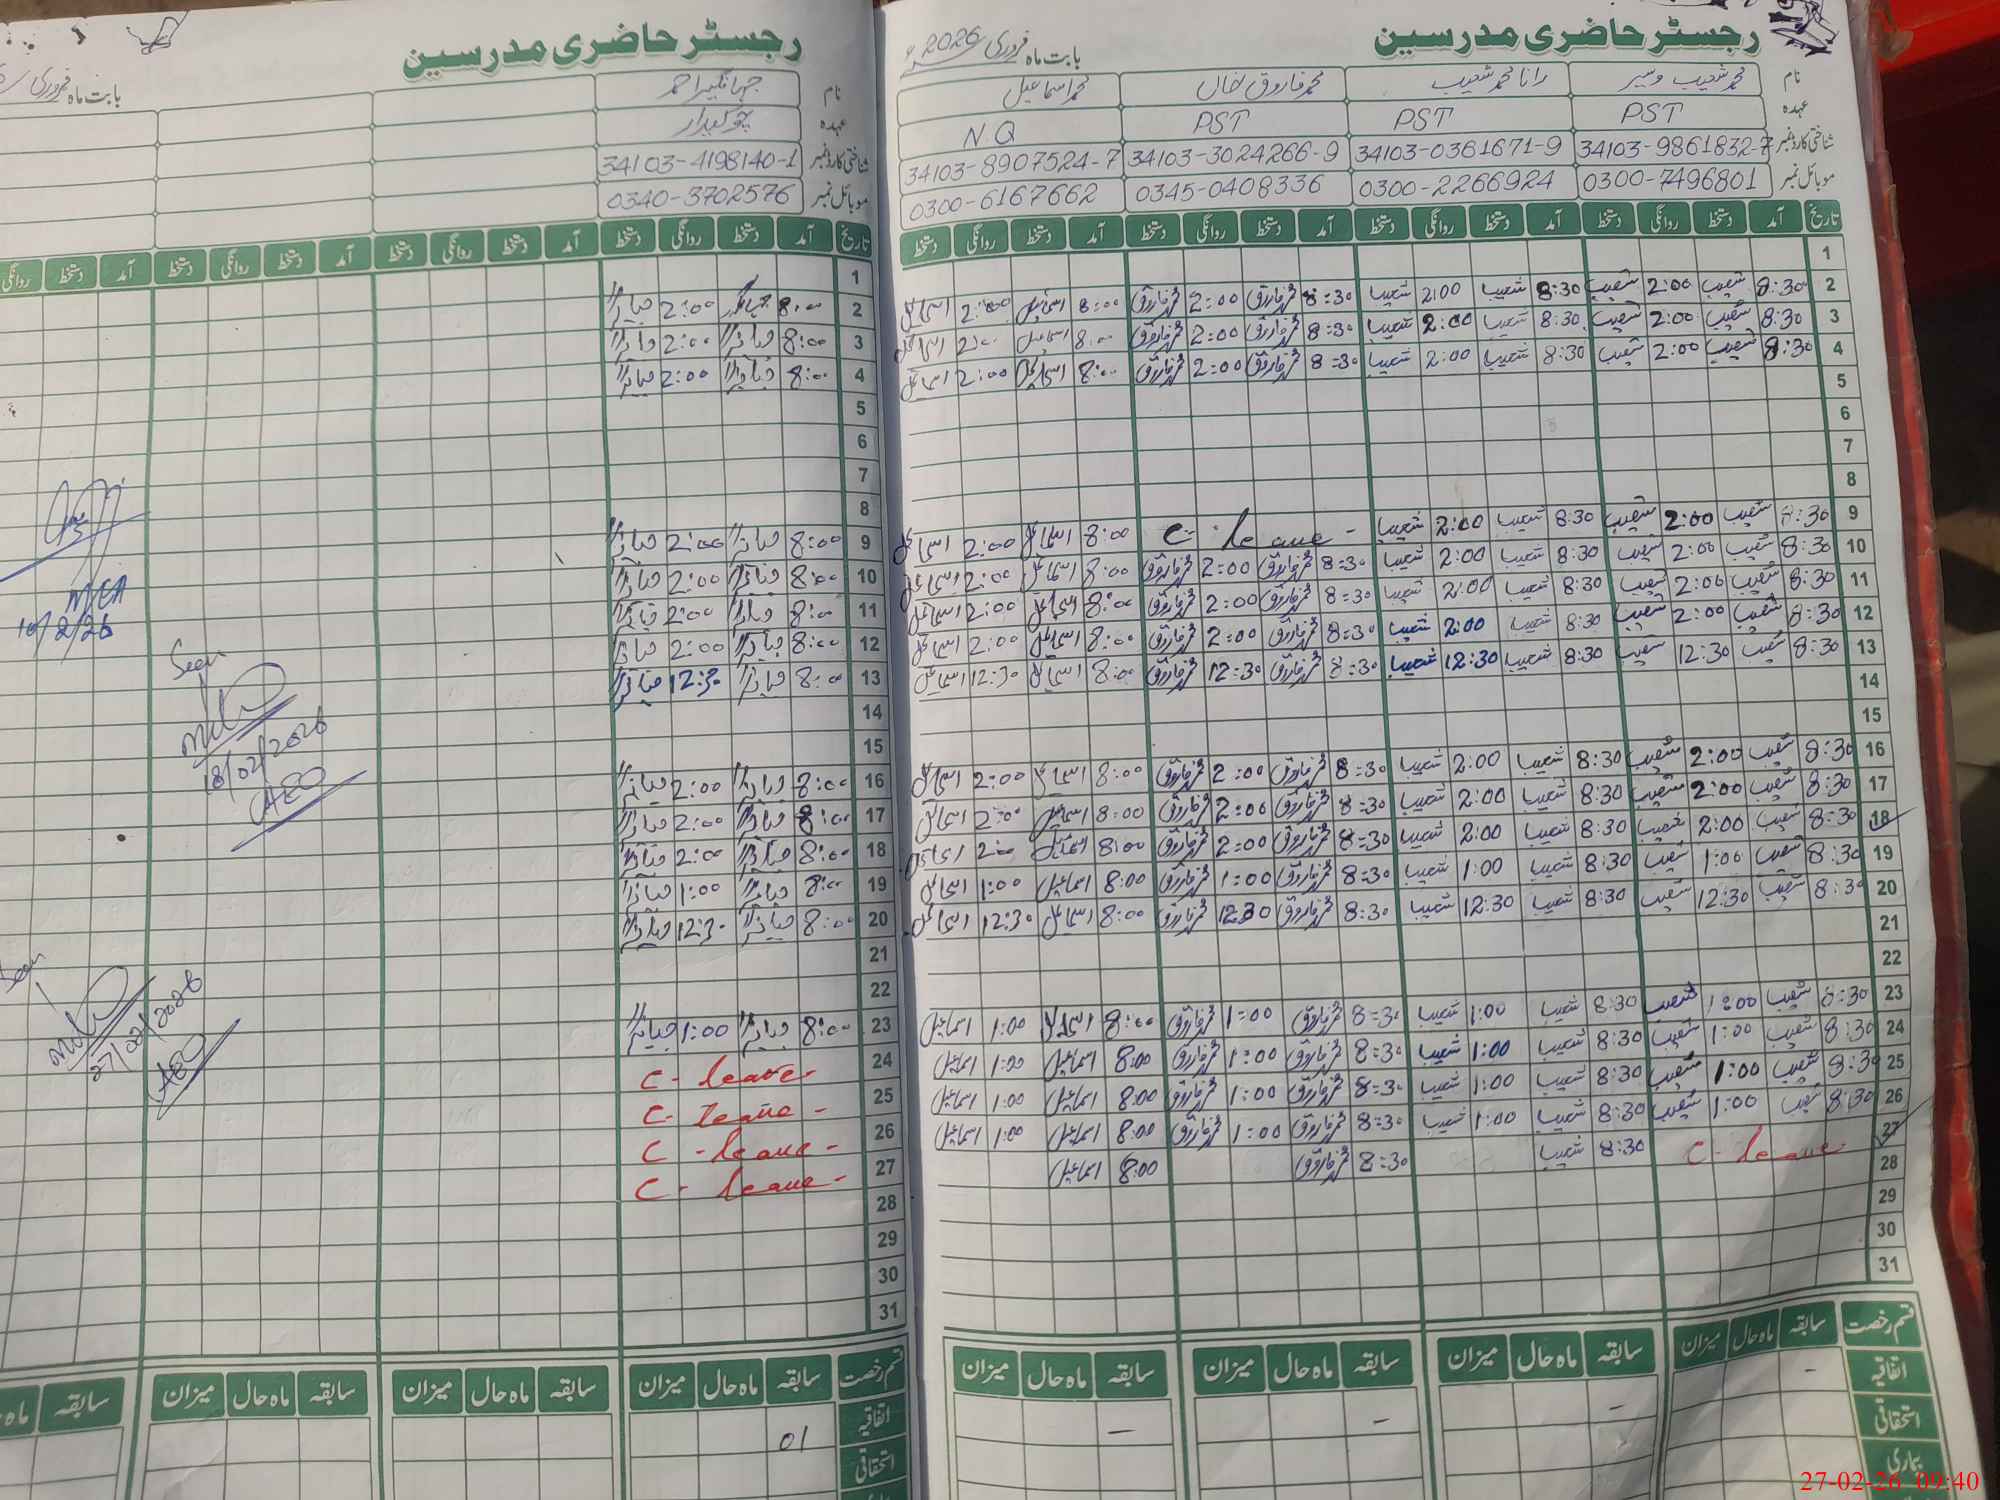 رجسٹر حاضری مدرسین
بابت ماہ فروری 2026ء
نام محمد شعیب وسیر رانا محمد شعیب محمد فاروق خاں محمد اسماعیل
عہدہ PST PST PST N.Q
شناختی کارڈ نمبر 34103-9861832-7 34103-0361671-9 34103-3024266-9 34103-8907524-7
موبائل نمبر 0300-7496801 0300-2266924 0345-0408336 0300-6167662
تاریخ آمد دستخط روانگی دستخط آمد دستخط روانگی دستخط آمد دستخط روانگی دستخط آمد دستخط روانگی دستخط
1
2 8:30 شعیب 2:00 شعیب 8:30 شعیب 2:00 شعیب 8:30 محمد فاروق 2:00 محمد فاروق 8:00 اسماعیل 2:00 اسماعیل
3 8:30 شعیب 2:00 شعیب 8:30 شعیب 2:00 شعیب 8:30 محمد فاروق 2:00 محمد فاروق 8:00 اسماعیل 2:00 اسماعیل
4 8:30 شعیب 2:00 شعیب 8:30 شعیب 2:00 شعیب 8:30 محمد فاروق 2:00 محمد فاروق 8:00 اسماعیل 2:00 اسماعیل
5
6
7
8
9 8:30 شعیب 2:00 شعیب 8:30 شعیب 2:00 شعیب C- leave - 8:00 اسماعیل 2:00 اسماعیل
10 8:30 شعیب 2:00 شعیب 8:30 شعیب 2:00 شعیب 8:30 محمد فاروق 2:00 محمد فاروق 8:00 اسماعیل 2:00 اسماعیل
11 8:30 شعیب 2:00 شعیب 8:30 شعیب 2:00 شعیب 8:30 محمد فاروق 2:00 محمد فاروق 8:00 اسماعیل 2:00 اسماعیل
12 8:30 شعیب 2:00 شعیب 8:30 شعیب 2:00 شعیب 8:30 محمد فاروق 2:00 محمد فاروق 8:00 اسماعیل 2:00 اسماعیل
13 8:30 شعیب 12:30 شعیب 8:30 شعیب 12:30 شعیب 8:30 محمد فاروق 12:30 محمد فاروق 8:00 اسماعیل 12:30 اسماعیل
14
15
16 8:30 شعیب 2:00 شعیب 8:30 شعیب 2:00 شعیب 8:30 محمد فاروق 2:00 محمد فاروق 8:00 اسماعیل 2:00 اسماعیل
17 8:30 شعیب 2:00 شعیب 8:30 شعیب 2:00 شعیب 8:30 محمد فاروق 2:00 محمد فاروق 8:00 اسماعیل 2:00 اسماعیل
18 8:30 شعیب 2:00 شعیب 8:30 شعیب 2:00 شعیب 8:30 محمد فاروق 2:00 محمد فاروق 8:00 اسماعیل 2:00 اسماعیل
19 8:30 شعیب 1:00 شعیب 8:30 شعیب 1:00 شعیب 8:30 محمد فاروق 1:00 محمد فاروق 8:00 اسماعیل 1:00 اسماعیل
20 8:30 شعیب 12:30 شعیب 8:30 شعیب 12:30 شعیب 8:30 محمد فاروق 12:30 محمد فاروق 8:00 اسماعیل 12:30 اسماعیل
21
22
23 8:30 شعیب 1:00 شعیب 8:30 شعیب 1:00 شعیب 8:30 محمد فاروق 1:00 محمد فاروق 8:00 اسماعیل 1:00 اسماعیل
24 8:30 شعیب 1:00 شعیب 8:30 شعیب 1:00 شعیب 8:30 محمد فاروق 1:00 محمد فاروق 8:00 اسماعیل 1:00 اسماعیل
25 8:30 شعیب 1:00 شعیب 8:30 شعیب 1:00 شعیب 8:30 محمد فاروق 1:00 محمد فاروق 8:00 اسماعیل 1:00 اسماعیل
26 8:30 شعیب 1:00 شعیب 8:30 شعیب 1:00 شعیب 8:30 محمد فاروق 1:00 محمد فاروق 8:00 اسماعیل 1:00 اسماعیل
27 C- leave 8:30 شعیب 8:30 محمد فاروق 8:00 اسماعیل
28
29
30
31
قسم رخصت سابقہ ماہ حال میزان سابقہ ماہ حال میزان سابقہ ماہ حال میزان سابقہ ماہ حال میزان
اتفاقیہ - - - -
استحقاقی
بیماری
رجسٹر حاضری مدرسین
بابت ماہ فروری
نام جہانگیر احمد
عہدہ چوکیدار
شناختی کارڈ نمبر 34103-4198140-1
موبائل نمبر 0340-3702576
تاریخ آمد دستخط روانگی دستخط آمد دستخط روانگی دستخط آمد دستخط روانگی دستخط آمد دستخط روانگی
1
2 8:00 2:00
3 8:00 2:00
4 8:00 2:00
5
6
7
8
9 8:00 2:00
10 8:00 2:00
11 8:00 2:00
12 8:00 2:00
13 8:00 12:30
14
15
16 8:00 2:00
17 8:00 2:00
18 8:00 2:00
19 8:00 1:00
20 8:00 12:30
21
22
23 8:00 1:00
24 C- leave
25 C- leave -
26 C - leave -
27 C- leave -
28
29
30
31
MEA
10/2/26
Seen
18/02/2026
AEO
Seen
27/02/2026
AEO
قسم رخصت سابقہ ماہ حال میزان سابقہ ماہ حال میزان سابقہ ماہ حال میزان سابقہ
اتفاقیہ 01
استحقاقی
27-02-26 09:40